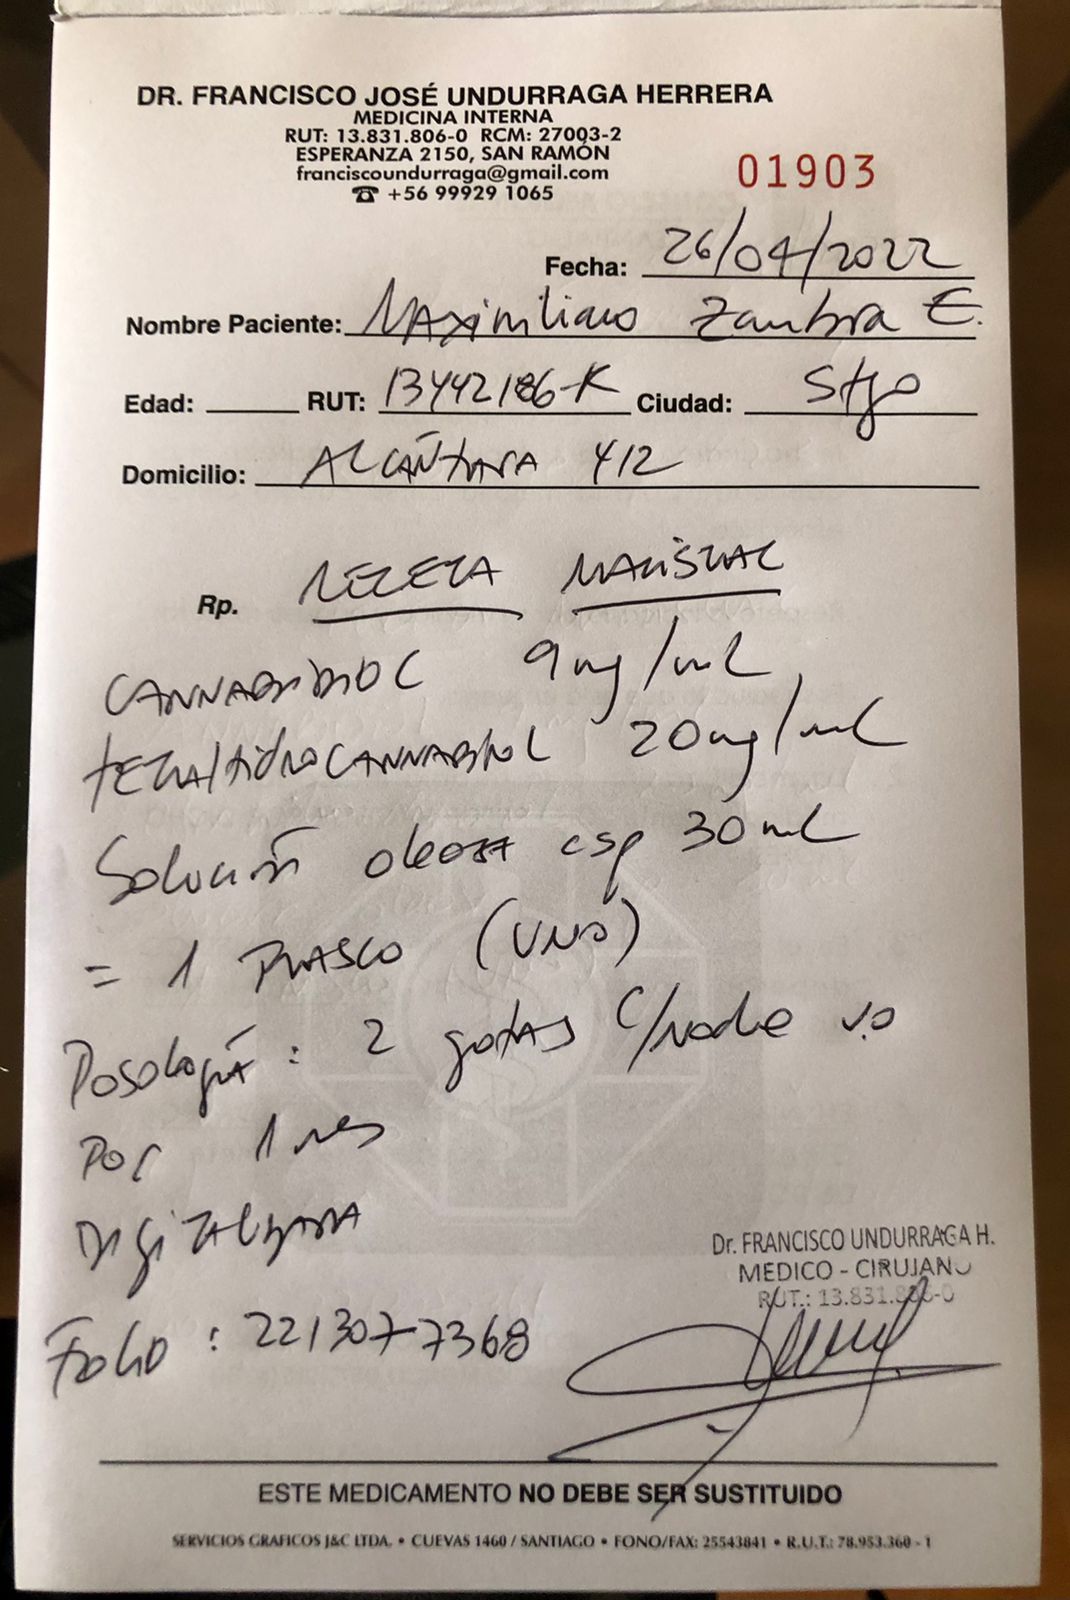 DR. FRANCISCO JOSÉ UNDURRAGA HERRERA
MEDICINA INTERNA
RUT: 13.831.806-0 RCM: 27003-2
ESPERANZA 2150, SAN RAMÓN
franciscoundurraga@gmail.com
☎ +56 99929 1065
01903
Fecha: 26/04/2022
Nombre Paciente: Maximiliano Zambra E.
Edad: RUT: 13442186-K Ciudad: Stgo
Domicilio: ALCÁNTARA 412
Rp. RECETA MAGISTRAL
CANNABIDIOL 9mg/mL
tetrahidrocannabinol 20mg/mL
Solución oleosa csp 30 mL
= 1 FRASCO (UNO)
Posología: 2 gotas c/noche v.o
Por 1 mes
DIGITALIZADA
Folio: 221307-7368
Dr. FRANCISCO UNDURRAGA H.
MEDICO - CIRUJANO
RUT.: 13.831.806-0
ESTE MEDICAMENTO NO DEBE SER SUSTITUIDO
SERVICIOS GRAFICOS J&C LTDA. • CUEVAS 1460 / SANTIAGO • FONO/FAX: 25543841 • R.U.T.: 78.953.360 - 1